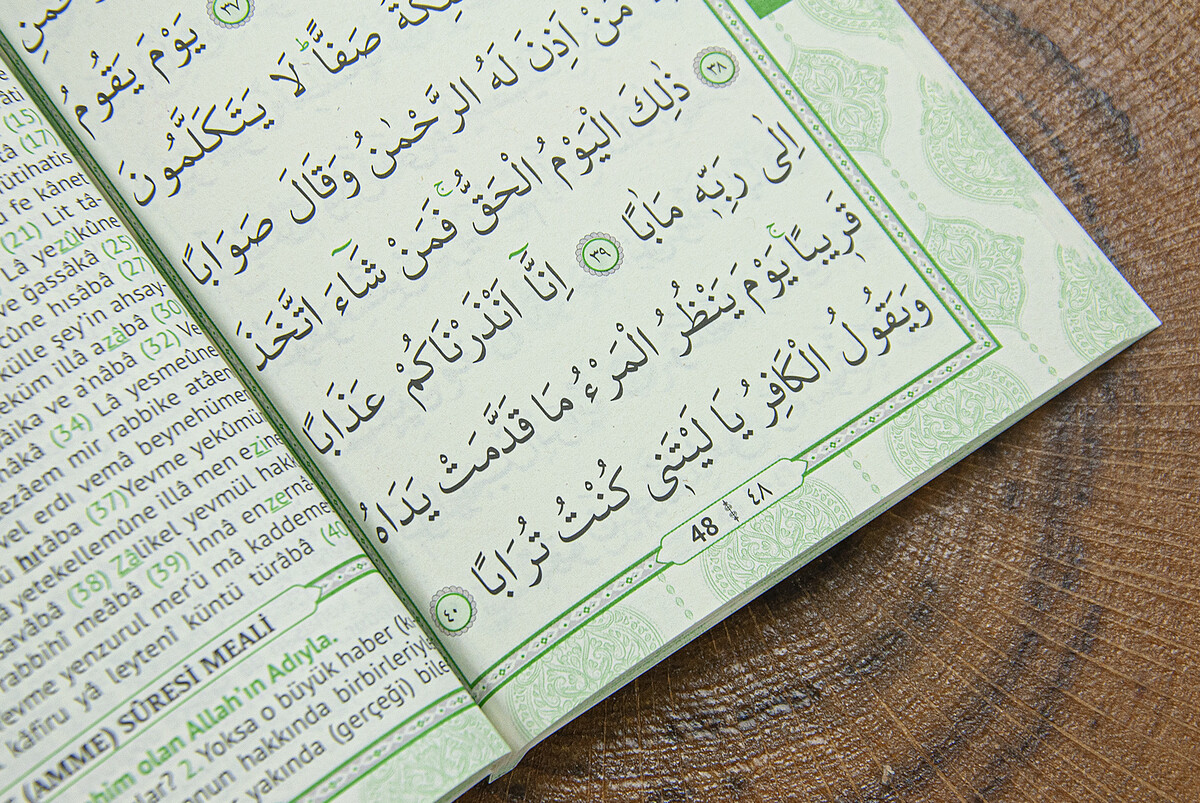 ٣٧ يَوْمَ يَقُومُ
صَفًّاۜ لَا يَتَكَلَّمُونَ
مَنْ اَذِنَ لَهُ الرَّحْمٰنُ وَقَالَ صَوَابًا
٣٨ ذٰلِكَ الْيَوْمُ الْحَقُّۚ فَمَنْ شَٓاءَ اتَّخَذَ
اِلٰى رَبِّه۪ مَاٰبًا ٣٩ اِنَّٓا اَنْذَرْنَاكُمْ عَذَابًا
قَر۪يبًاۚ يَوْمَ يَنْظُرُ الْمَرْءُ مَا قَدَّمَتْ يَدَاهُ
وَيَقُولُ الْكَافِرُ يَا لَيْتَن۪ى كُنْتُ تُرَابًا ٤٠
48 ٤٨
(15)
(17)
fe kânet
(21) Lit tâ-
Lâ yezûkûne
ve ğassâkâ (25)
hısâbâ (27)
külle şey'in ahsay-
illâ azâbâ (30)
ve a'nâbâ (32)
(34) Lâ yesmeûne
mir rabbike atâen
vel erdı vemâ beynehümer
hıtâba (37) Yevme yekûmür
yetekellemûne illâ men ezine
(38) Zâlikel yevmül hakk
rabbihî meâbâ (39) İnnâ enzernâ
yenzurul mer'ü mâ kaddeme
kâfiru yâ leytenî küntü türâbâ (40
(AMME) SÛRESİ MEALİ
olan Allah'ın Adıyla.
2. Yoksa o büyük haber
hakkında birbirleriyle
yakında (gerçeği) bile